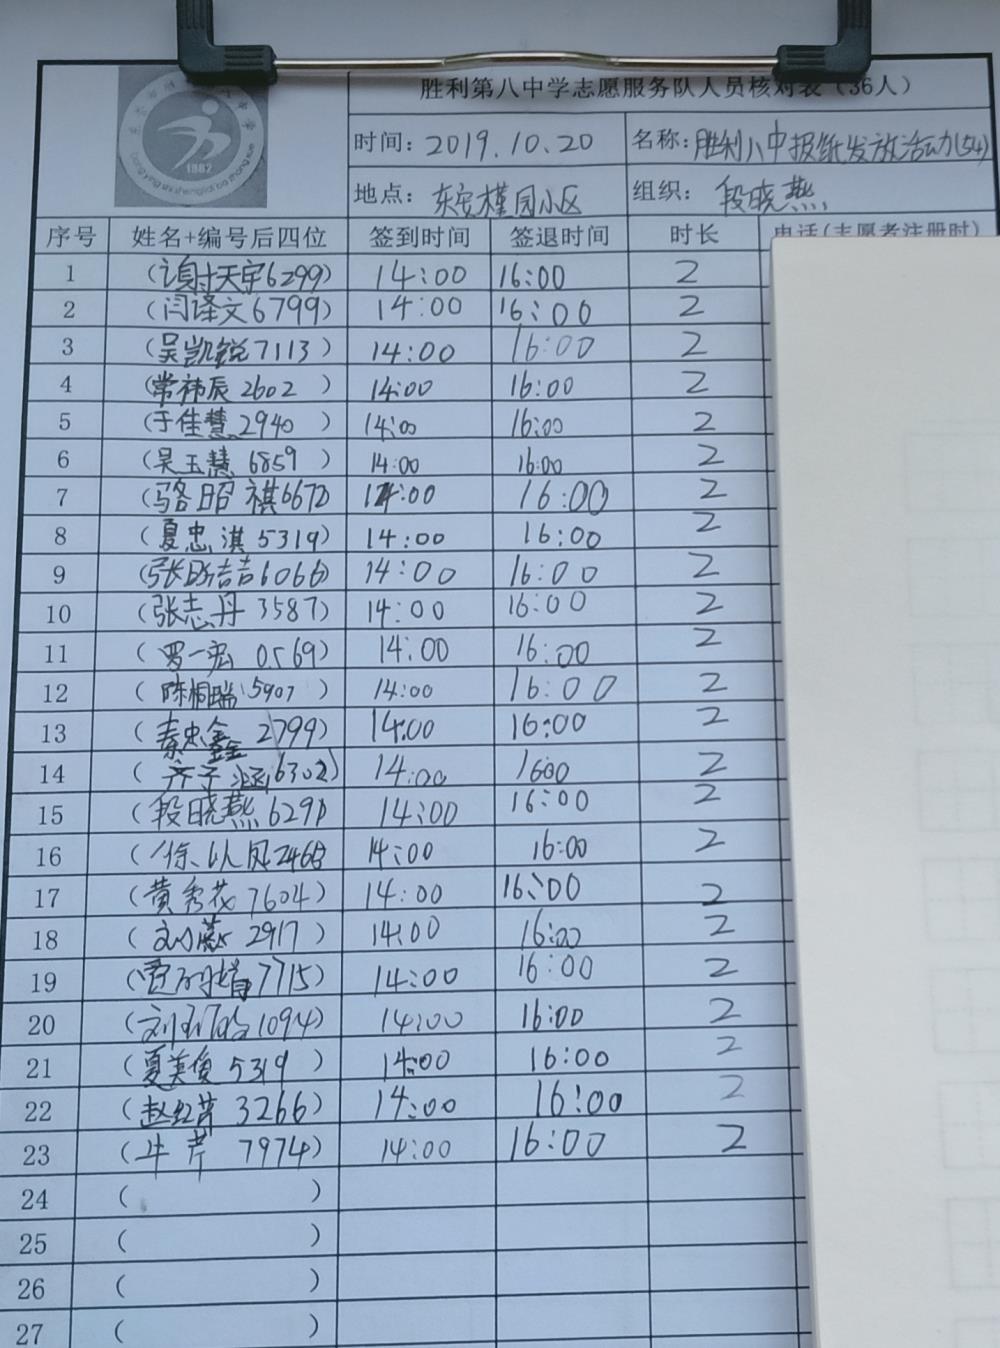 胜利第八中学志愿服务队人员核对表（36人）
时间：2019.10.20 名称：胜利八中报纸发放活动(54)
地点：东安槿园小区 组织：段晓燕
1982
序号 姓名+编号后四位 签到时间 签退时间 时长 电话(志愿者注册时)
1 (谢天宇6299) 14:00 16:00 2
2 (闫译文6799) 14:00 16:00 2
3 (吴凯锐7113) 14:00 16:00 2
4 (常祎辰2602) 14:00 16:00 2
5 (于佳慧2940) 14:00 16:00 2
6 (吴玉慧6859) 14:00 16:00 2
7 (骆昭祺6672) 14:00 16:00 2
8 (夏忠淇5319) 14:00 16:00 2
9 (张 6066) 14:00 16:00 2
10 (张志丹3587) 14:00 16:00 2
11 (罗一宏0569) 14:00 16:00 2
12 (陈桐瑞5907) 14:00 16:00 2
13 (秦忠鑫2799) 14:00 16:00 2
14 (齐子涵6302) 14:00 1600 2
15 (段晓燕6291) 14:00 16:00 2
16 (徐以凤2468 14:00 16:00 2
17 (黄秀花7604) 14:00 16:00 2
18 (刘薇2917) 14:00 16:00 2
19 (贾 7715) 14:00 16:00 2
20 (刘 1094) 14:00 16:00 2
21 (夏美俊5319) 14:00 16:00 2
22 (赵红芹3266) 14:00 16:00 2
23 (牛芹7974) 14:00 16:00 2
24 ( )
25 ( )
26 ( )
27 ( )